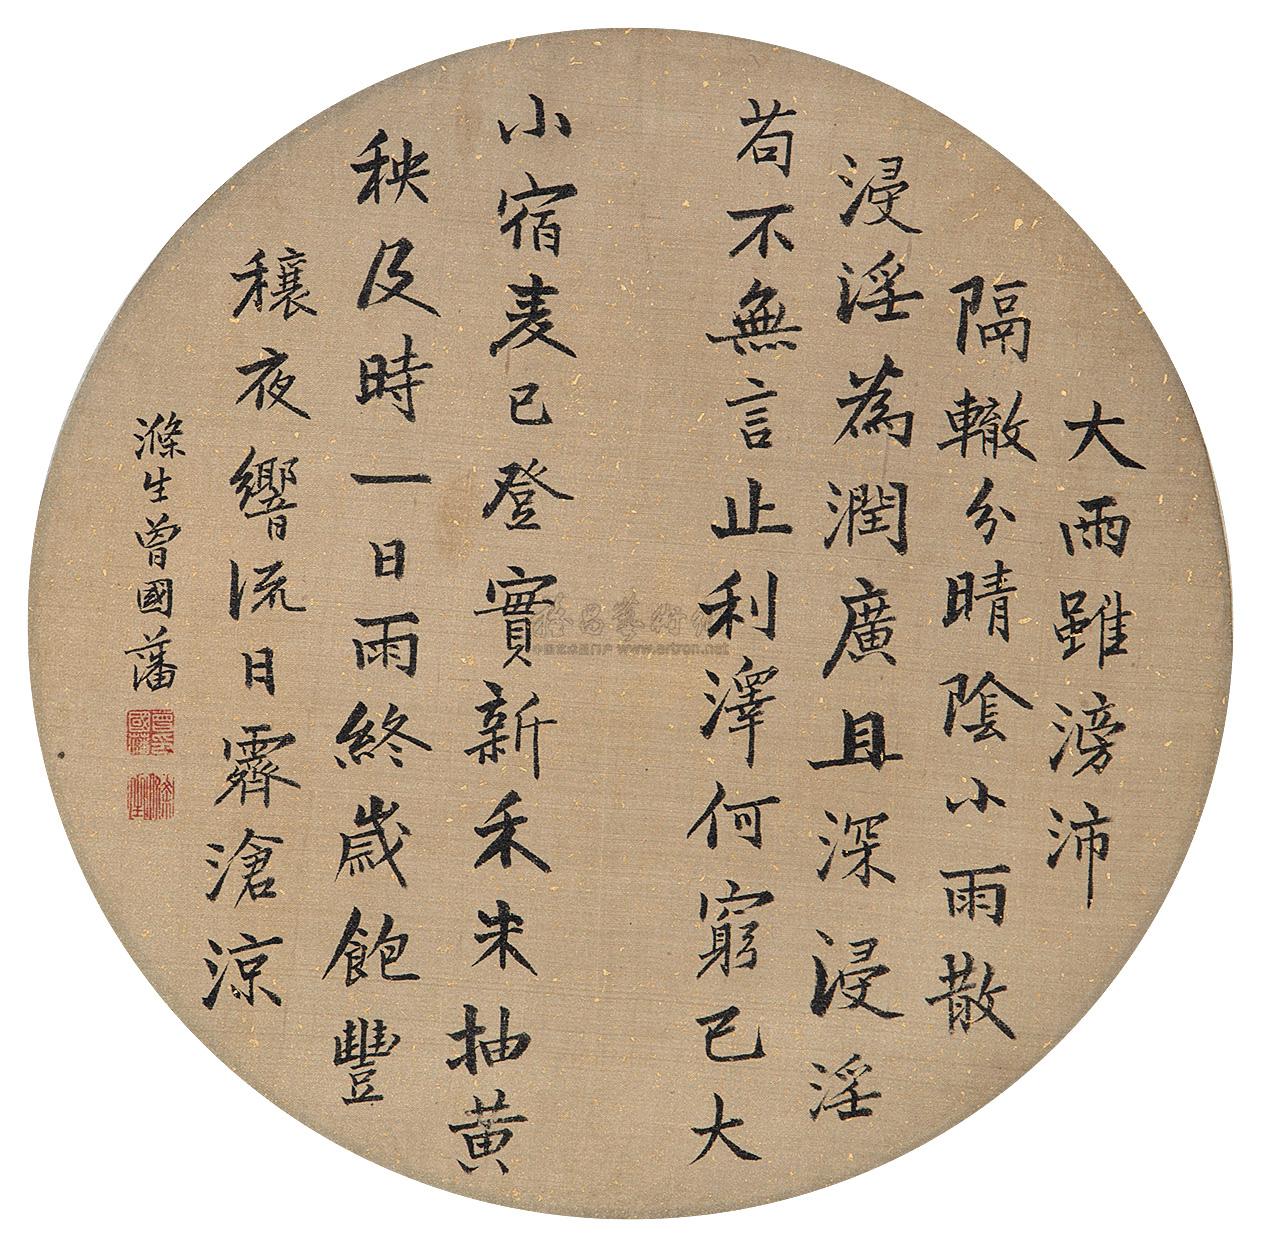 大雨雖滂沛
隔轍分晴陰小雨散
浸淫為潤廣且深浸淫
苟不無言止利澤何窮已大
小宿麦已登實新禾未抽黄
秧及時一日雨終歲飽豐
穰夜響流日霽滄涼
滌生曾國藩
www.artron.net